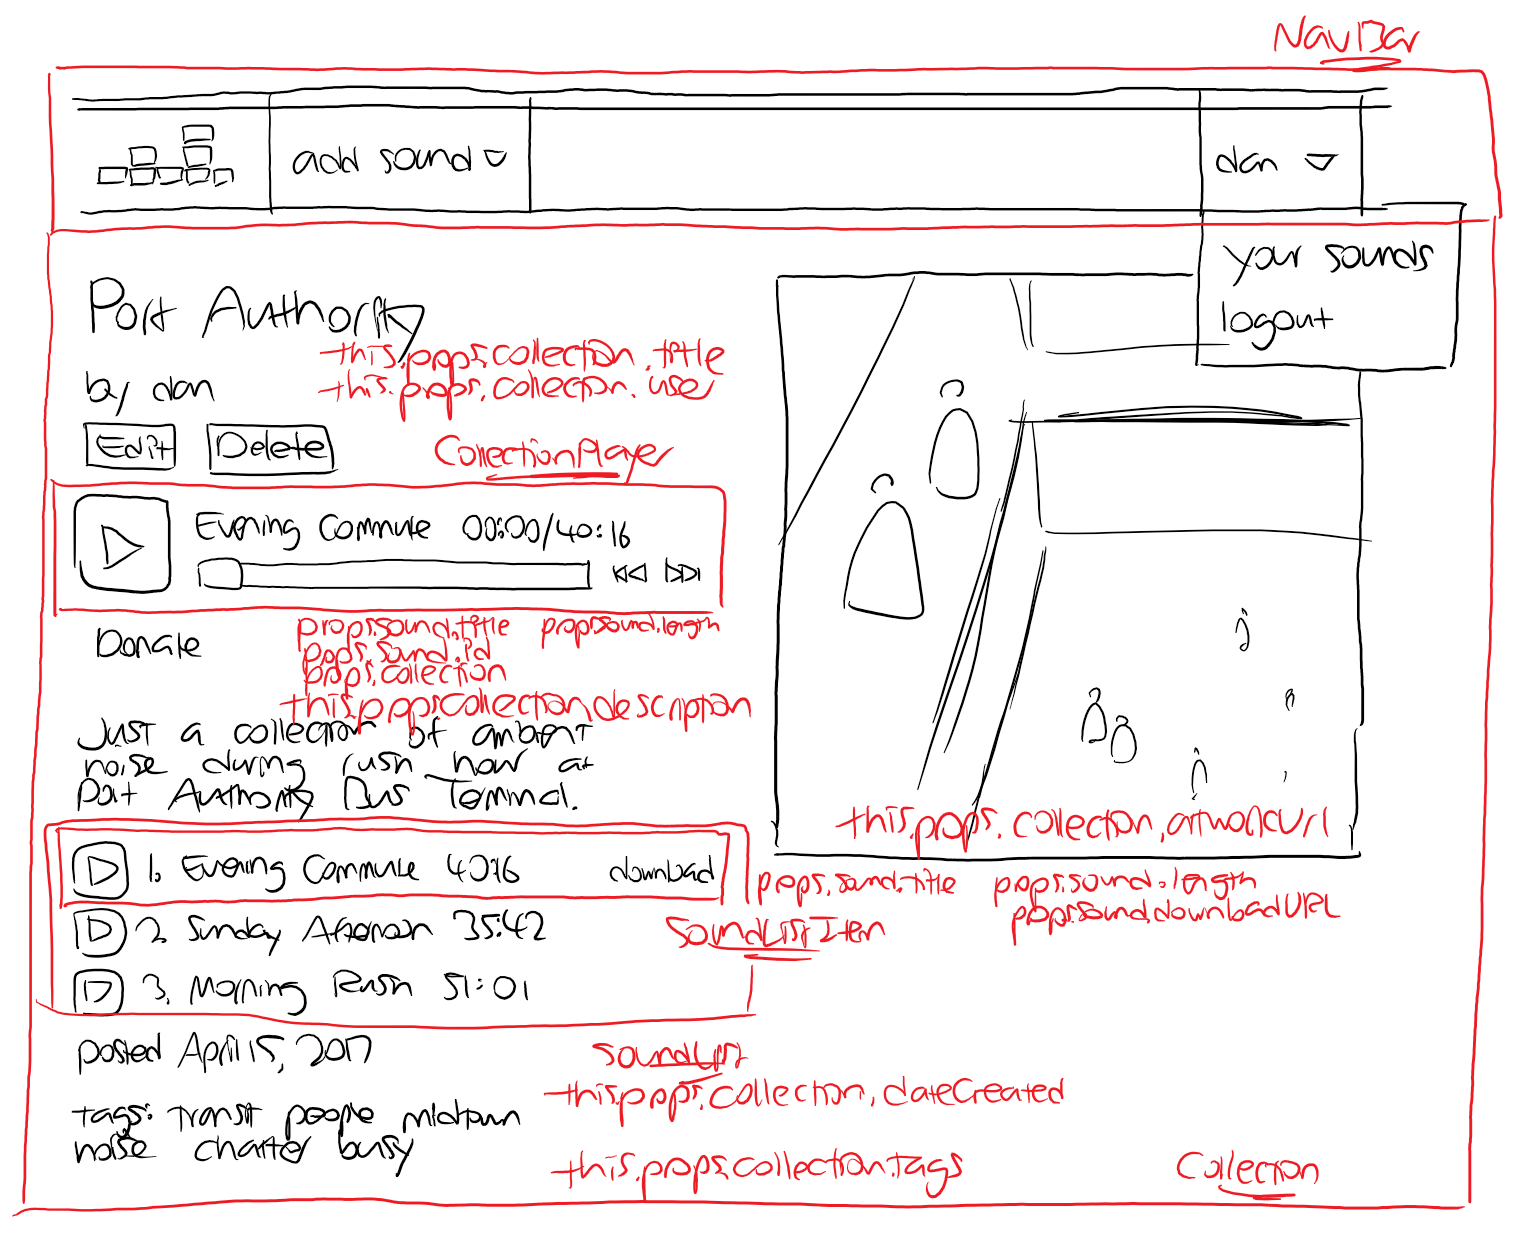 NavBar
add sound
dan
your sounds
logout
Port Authority
this.props.collection.title
by dan
this.props.collection.user
Edit
Delete
CollectionPlayer
Evening Commute 00:00/40:16
props.sound.title props.sound.length
Donate
props.sound.id
props.collection
this.props.collection.description
Just a collection of ambient
noise during rush hour at
Port Authority Bus Terminal.
this.props.collection.artworkUrl
1. Evening Commute 40:16 download
props.sound.title props.sound.length
props.sound.downloadURL
2. Sunday Afternoon 35:42
SoundListItem
3. Morning Rush 51:01
posted April 15, 2017
SoundList
this.props.collection.dateCreated
tags: transit people midtown
noise chatter busy
this.props.collection.tags
Collection